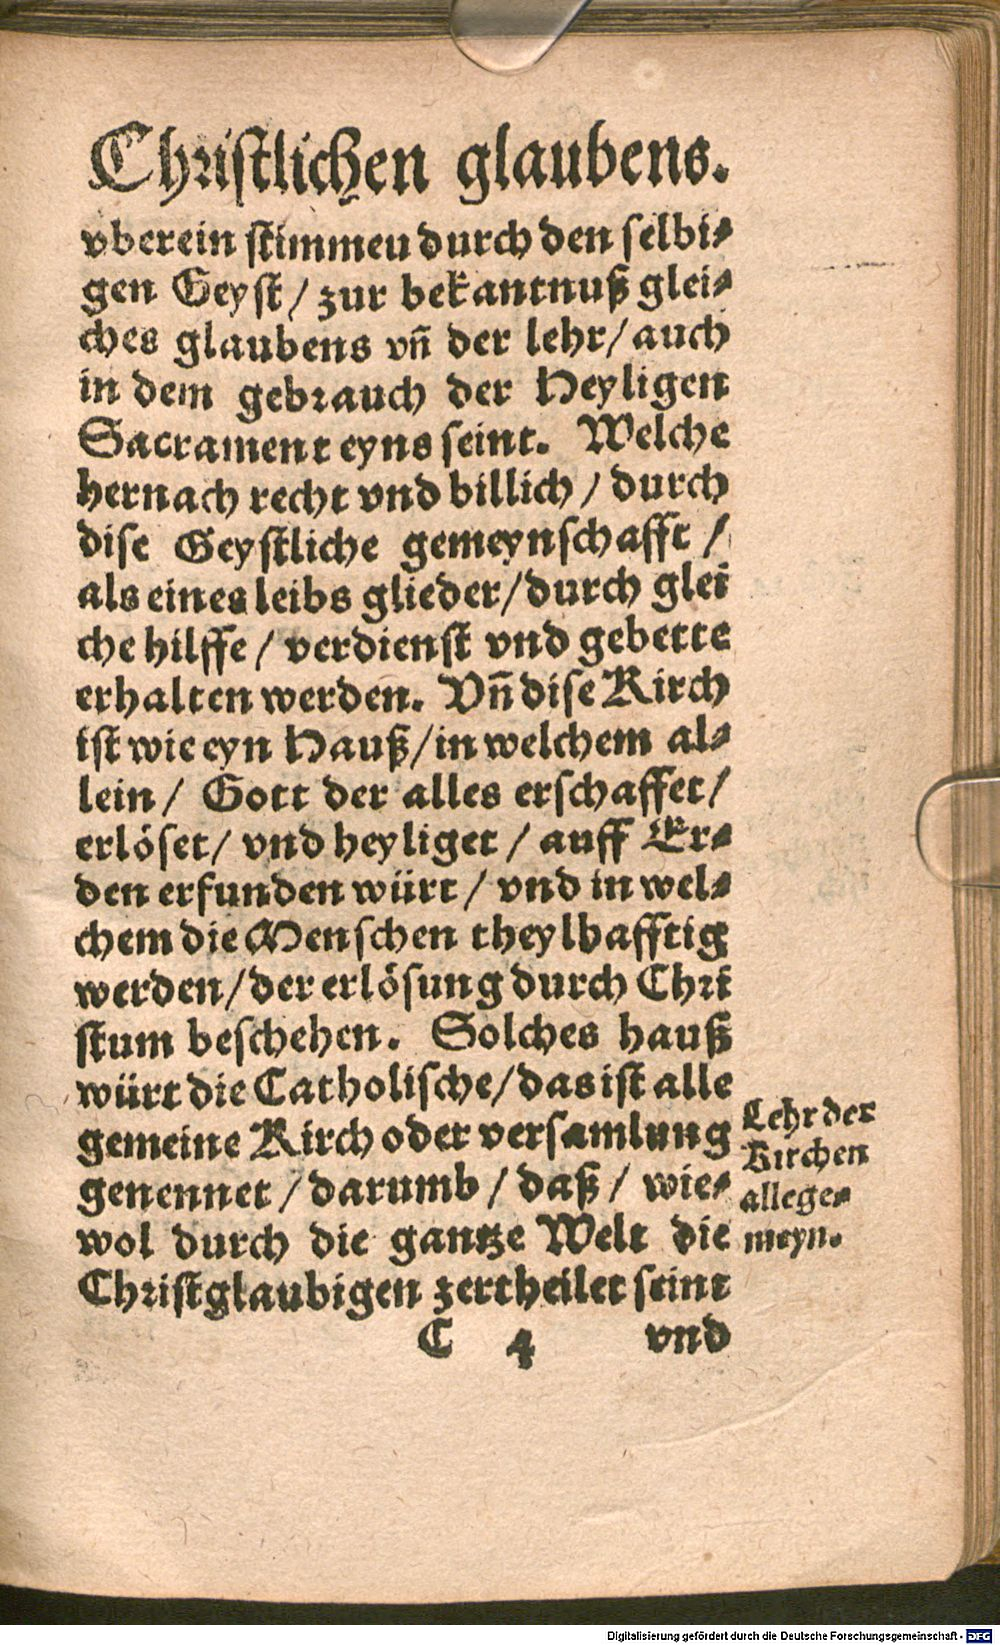 Christlichen glaubens.
vberein stimmeu durch den selbi⸗
gen Geyst / zur bekantnuß glei⸗
ches glaubens vñ der lehr / auch
in dem gebrauch der Heyligen
Sacrament eyns seint. Welche
hernach recht vnd billich / durch
dise Geystliche gemeynschafft /
als eines leibs glieder / durch glei
che hilffe / verdienst vnd gebette
erhalten werden. Vñ dise Kirch
ist wie eyn Hauß / in welchem al⸗
lein / Gott der alles erschaffet /
erlöset / vnd heyliget / auff Er⸗
den erfunden würt / vnd in wel⸗
chem die Menschen theylhafftig
werden / der erlösung durch Chri
stum beschehen. Solches hauß
würt die Catholische / das ist alle
gemeine Kirch oder versamlung
genennet / darumb / daß / wie⸗
wol durch die gantze Welt die
Christglaubigen zertheilet seint
C 4 vnd
Lehr der
Kirchen
allege⸗
meyn.
Digitalisierung gefördert durch die Deutsche Forschungsgemeinschaft - DFG